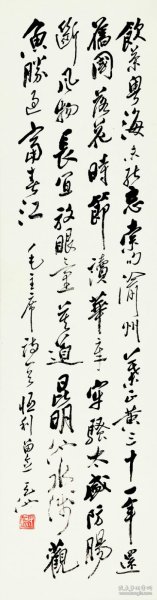 飲茶粵海未能忘索句渝州葉正黄三十一年還
舊國落花時節讀華章牢騷太盛防腸
斷風物長宜放眼量莫道昆明池水淺觀
魚勝過富春江 毛主席詩